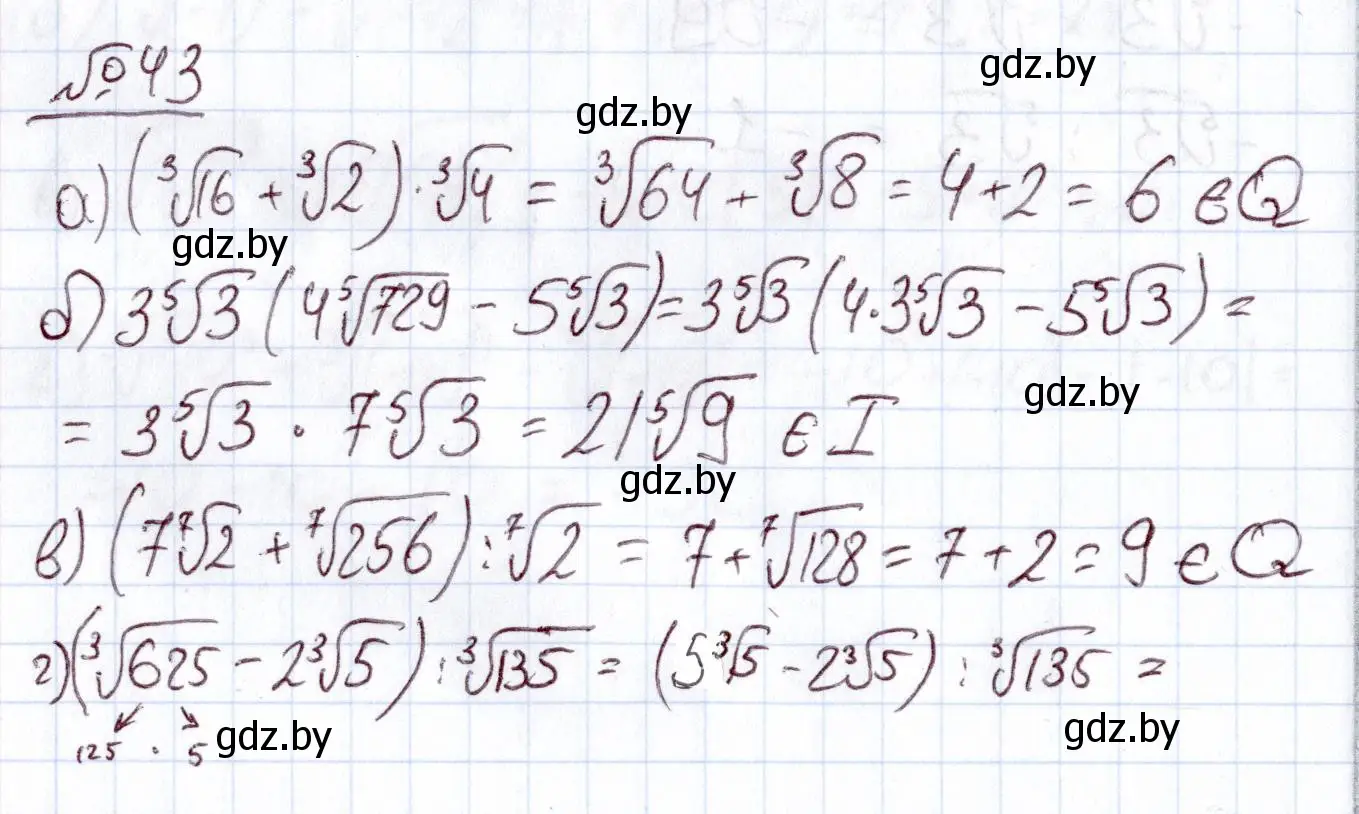 №43
gdz.by
gdz.by
а) (∛16 + ∛2) · ∛4 = ∛64 + ∛8 = 4 + 2 = 6 ∈ Q
gdz.by
б) 3⁵√3 (4⁵√729 - 5⁵√3) = 3⁵√3 (4·3⁵√3 - 5⁵√3) =
gdz.by
= 3⁵√3 · 7⁵√3 = 21⁵√9 ∈ I
gdz.by
в) (7⁷√2 + ⁷√256) : ⁷√2 = 7 + ⁷√128 = 7 + 2 = 9 ∈ Q
г) (∛625 - 2∛5) : ∛135 = (5∛5 - 2∛5) : ∛135 =
125 · 5
gdz.by
gdz.by